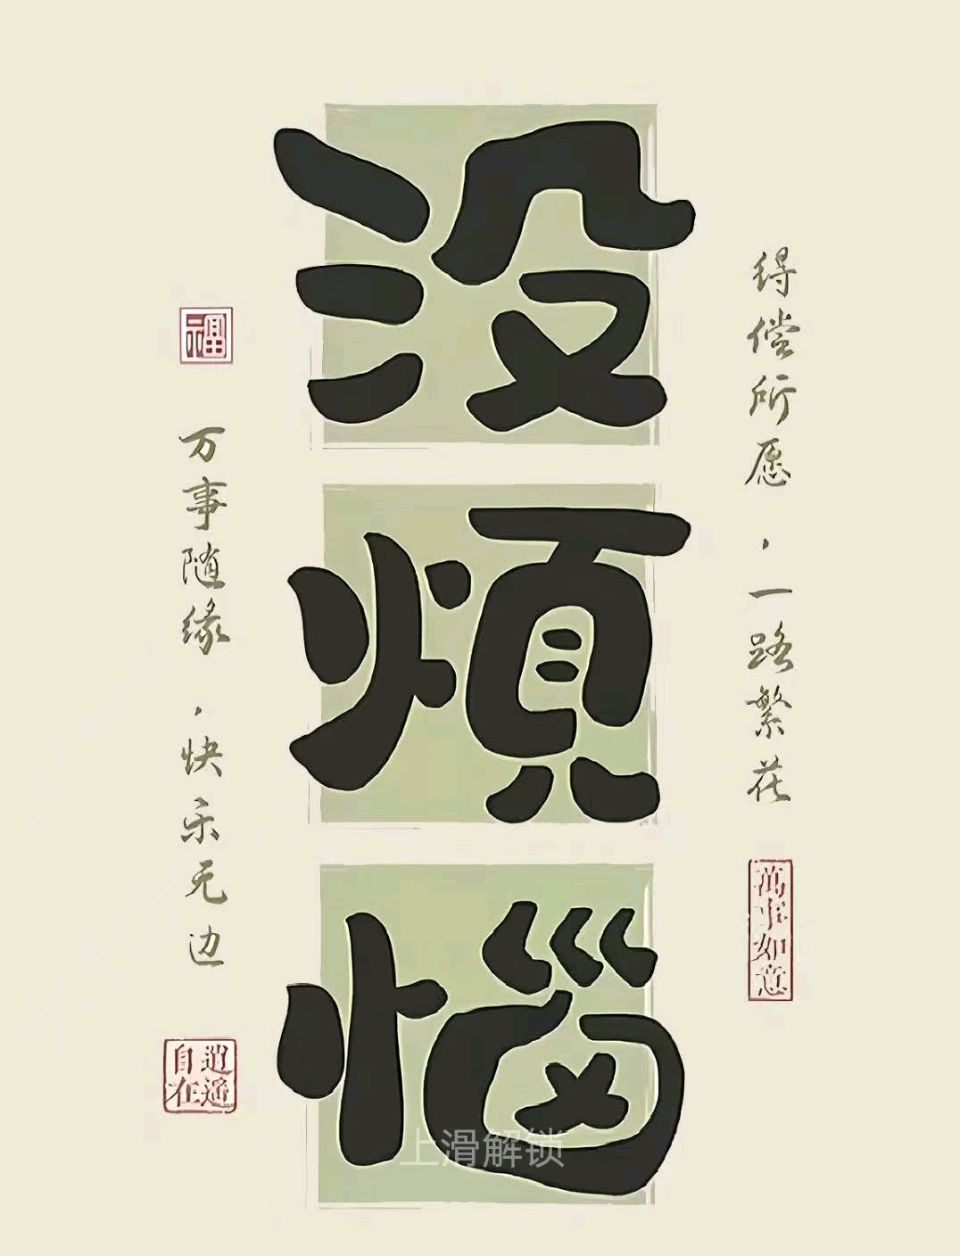 没
烦
惱
得偿所愿，一路繁花
萬事如意
福
万事随缘，快乐无边
逍遥
自在
上滑解锁